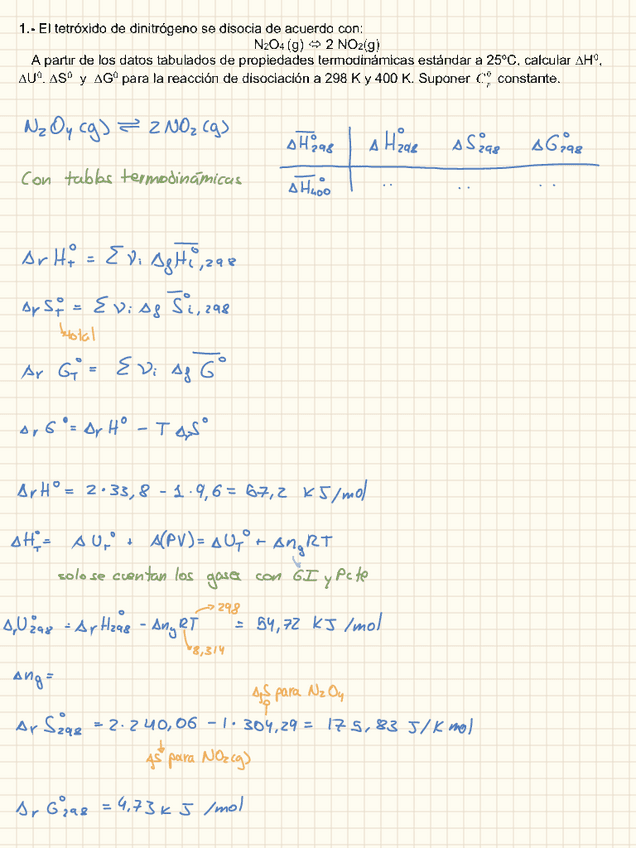 1.- El tetróxido de dinitrógeno se disocia de acuerdo con:
N₂O₄ (g) ⇔ 2 NO₂(g)
A partir de los datos tabulados de propiedades termodinámicas estándar a 25ºC, calcular ΔH⁰,
ΔU⁰. ΔS⁰ y ΔG⁰ para la reacción de disociación a 298 K y 400 K. Suponer constante.
N₂O₄(g) ⇌ 2NO₂(g)
ΔH̅°₂₉₈ | ΔH°₂₉₈ ΔS°₂₉₈ ΔG°₂₉₈
Con tablas termodinámicas
ΔH̅°₄₀₀ | .. .. ..
ΔrH°T = Σ νi ΔfH̅i°,298
ΔrS°T = Σ νi Δf S̅i°,298
total
Δr G°T = Σ νi Δf G̅°
ΔrG° = ΔrH° - T ΔrS°
ΔrH° = 2·33,8 - 1·9,6 = 67,2 KJ/mol
ΔH°T = ΔUT° + Δ(PV) = ΔUT° + ΔngRT
solo se cuentan los gases con GI y P cte
298
ΔrU°298 = ΔrH°298 - ΔngRT = 54,72 KJ/mol
8,314
Δng =
ΔfS para N₂O₄
ΔrS°298 = 2·240,06 - 1·304,29 = 175,83 J/K mol
ΔfS para NO₂(g)
ΔrG°298 = 4,73 KJ/mol